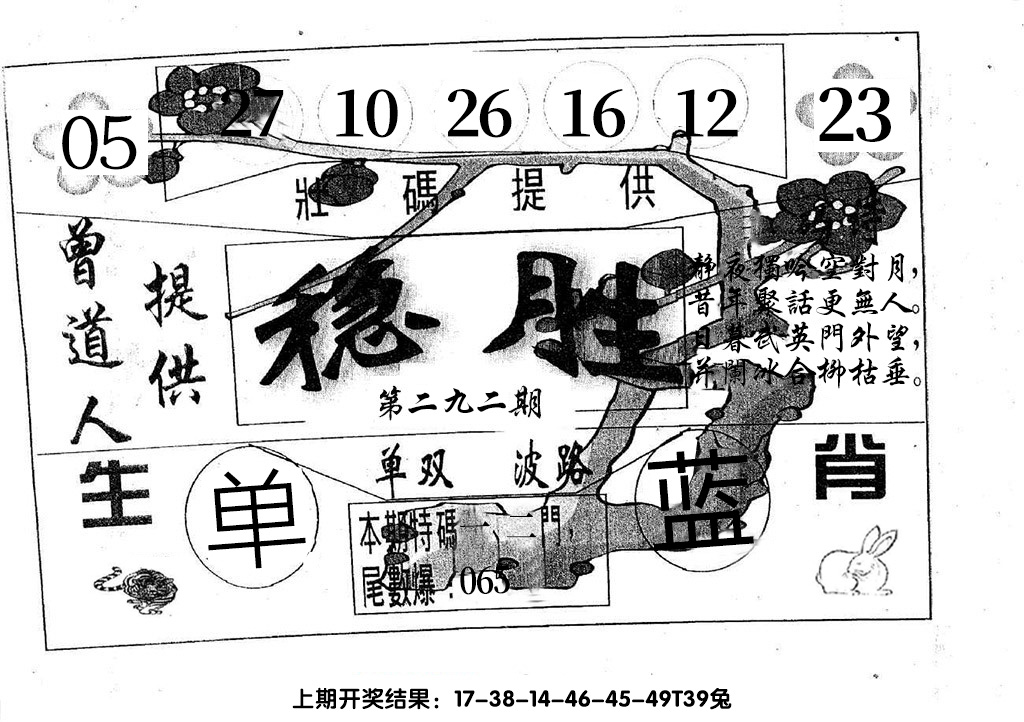 05 27 10 26 16 12 23
壯碼提供
曾道人
提供
稳胜
第二九二期
特
靜夜獨吟空對月，
昔年聚話更無人。
日暮武英門外望，
井闌冰合柳枯垂。
单双 波路
生 单 蓝 肖
本期特碼一、二門，
尾數爆:065
上期开奖结果：17-38-14-46-45-49T39兔